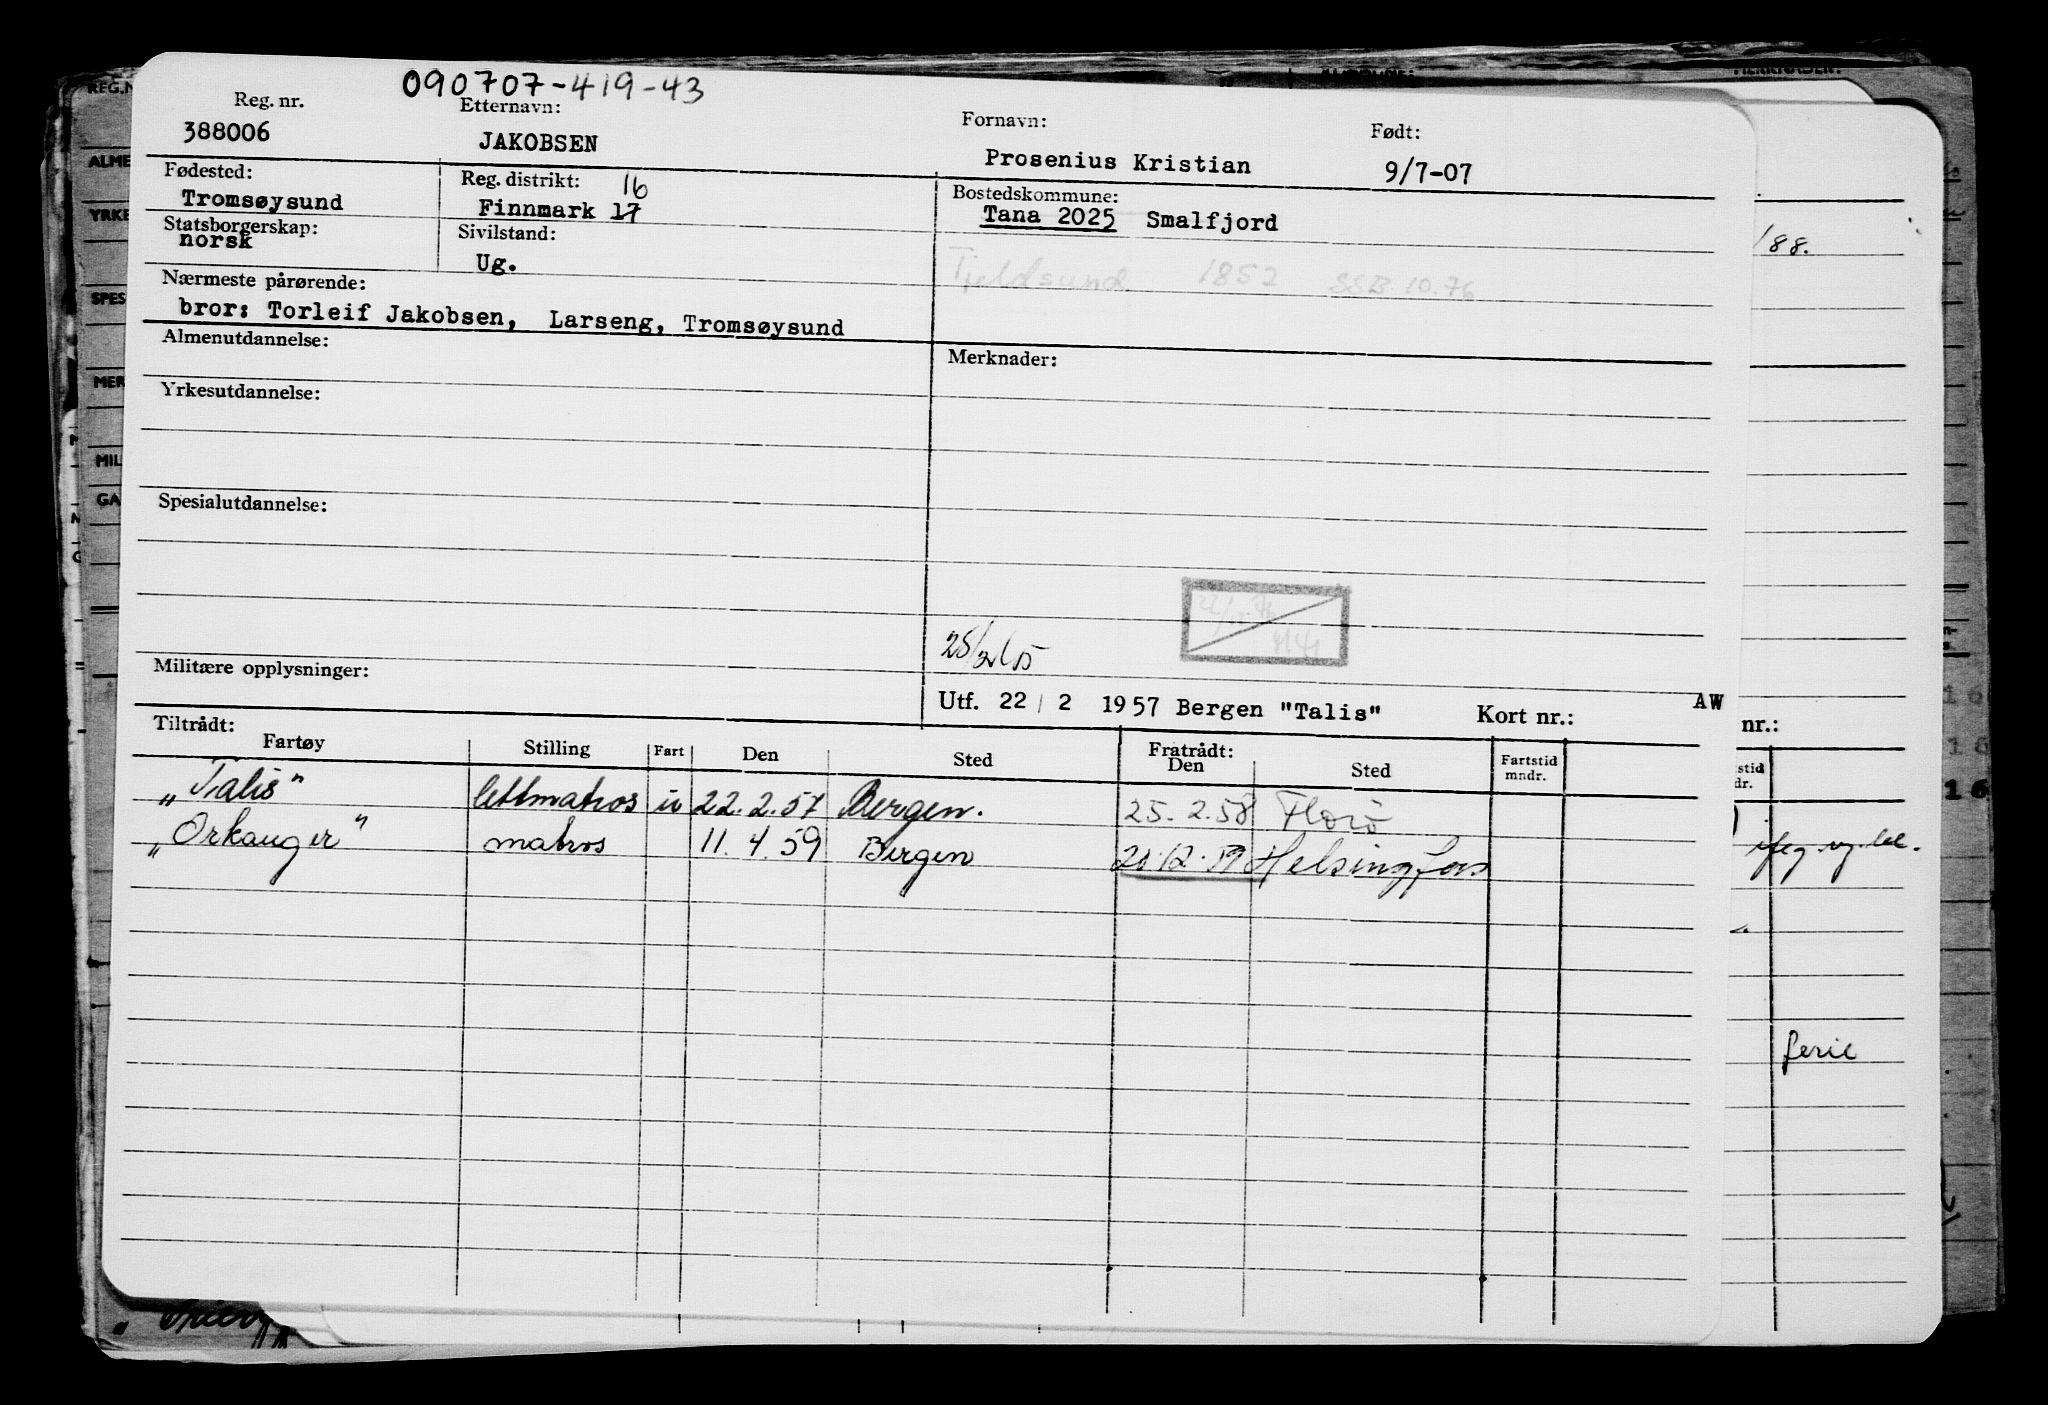 090707-419-43
Reg. nr. Etternavn: Fornavn: Født:
388006 JAKOBSEN Prosenius Kristian 9/7-07
Fødested: Reg. distrikt: 16 Bostedskommune:
Tromsøysund Finnmark 17 Tana 2025 Smalfjord
Statsborgerskap: Sivilstand:
norsk Ug.
Tjeldsund 1852 SSB 10.76
Nærmeste pårørende:
bror: Torleif Jakobsen, Larseng, Tromsøysund
Almenutdannelse: Merknader:
Yrkesutdannelse:
Spesialutdannelse:
Militære opplysninger:
Utf. 22 / 2 1957 Bergen "Talis" Kort nr.: AW
Tiltrådt: Fratrådt:
Fartøy Stilling Fart Den Sted Den Sted Fartstid mndr.
"Talis" lettmatros u 22.2.57 Bergen. 25.2.58 Florø
"Orkanger" matros 11.4.59 Bergen 20.12.59 Helsingfors
/88.
nr.:
ferie
REG.N
ALME
YRKE
SPES
MER
MIL
GA
16
16
16